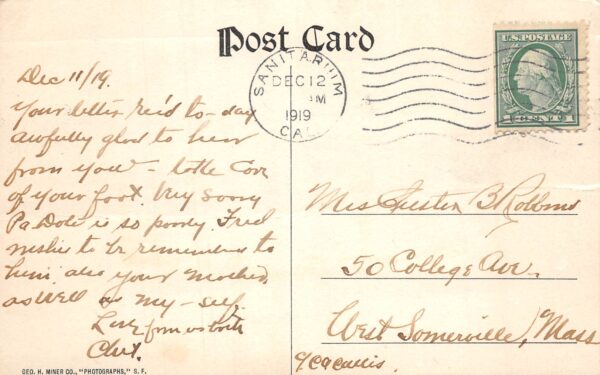 Post Card
SANITARIUM
DEC 12
M
1919
CAL.
U.S. POSTAGE
Dec 11/19.
Your letter rec'd to-day
awfully glad to hear
from you - take Care
of your foot. Very Sorry
Pa Dole is so poorly. Fred
wishes to be remembered to
him also your Mother,
as well as my-self.
Love from us both
Mrs B. Robbins
50 College Ave.
West Somerville, Mass
GEO. H. MINER CO., "PHOTOGRAPHS," S. F.